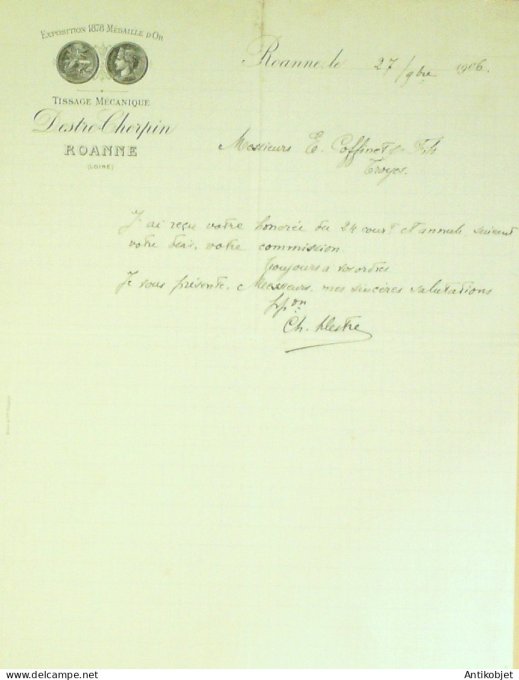 EXPOSITION 1878 MÉDAILLE D'OR
TISSAGE MÉCANIQUE
Destre-Cherpin
ROANNE
(LOIRE)
Roanne, le 27/9bre 1906.
Messieurs E. Coffinet & Fils
Troyes.
J'ai reçu votre honorée du 24 cour.t et annule, suivant
votre désir, votre commission.
Toujours à vos ordres
Je vous présente, Messieurs, mes sincères salutations
ppon
Ch. Destre
Antikobjet